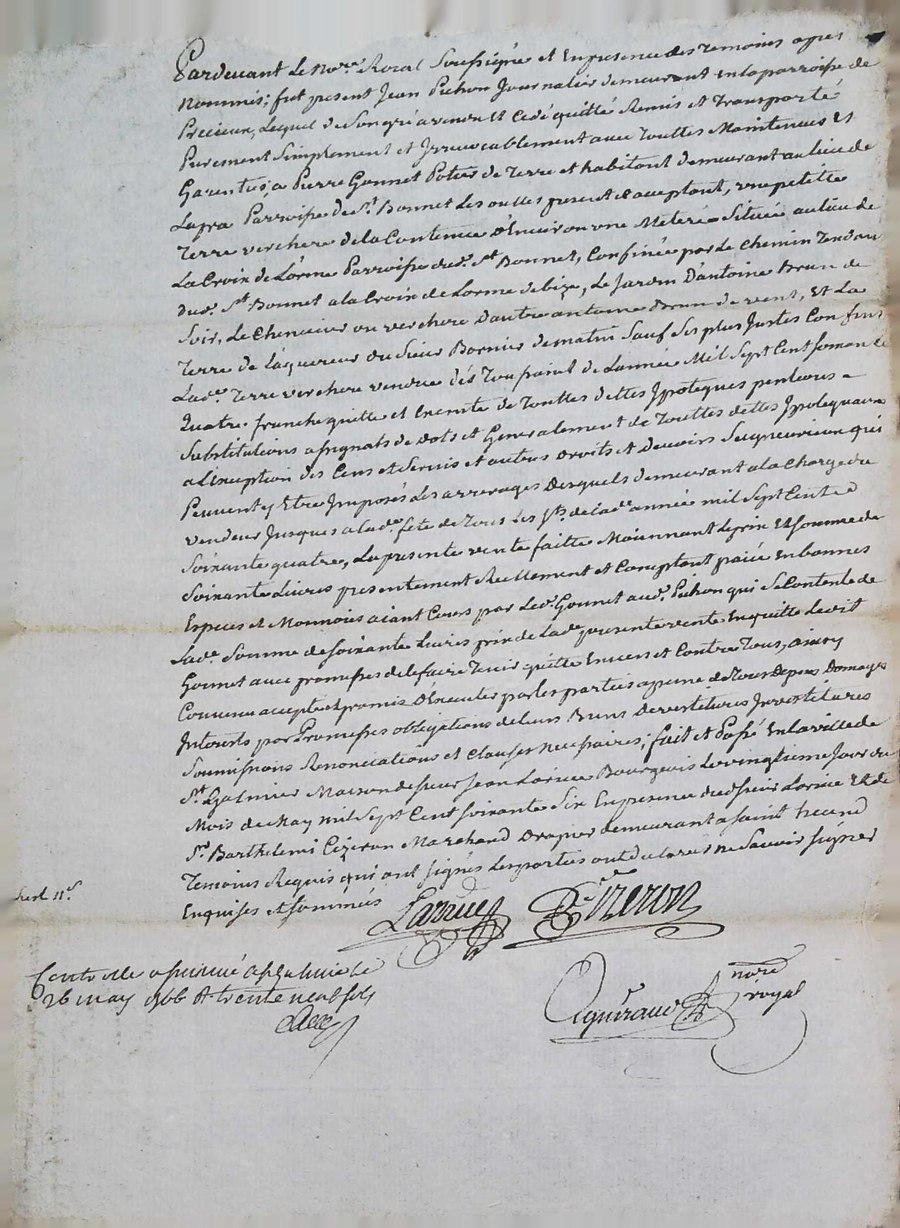 Pardevant Le Nore. Royal Soussigné et En presence des temoins apres
Nommés; fut present Jean Pichon Journalier demeurant en la parroisse de
Precieux, Lequel de Son gré a vendu Et Cedé quitté Remis et Transporté
Purement Simplement et Irrevocablement avec Touttes Maintenues Et
Garenties a Pierre Gonnet Potier de Terre et habitant demeurant au lieu de
Lapra Parroisse de St. Bonnet Les oulles present et acceptant, une petite
Terre verchere de la Contenue d'Environ une Meterée Située au lieu de
La Croix de Lorme Parroisse dud. St Bonnet, Confinée par Le Chemin Tendant
dud. St Bonnet a la Croix de Lorme de bize, Le Jardin D'antoine Brun de
Soir, Le Chenevier ou verchere D'autre antoine Brun de vent, Et La
Terre de L'aquereur du Sieur Bornier de matin Sauf Ses plus Justes Confins
Lade. Terre verchere vendue dés Toussaint de L'année Mil Sept Cent soixante
Quatre. franche quitte et Exempte de Touttes dettes Ypoteques pentions
Substitutions assignats de dots et Generalement de Touttes dettes Ypotequaires
a L'exeption des Cens et Servis et autres Droits et devoirs Seigneuriaux qui
Peuvent y Etre Imposés Les arrerages Desquels demeurant a la Charge du
vendeur Jusques a lade. fete de Tous Les Sts. de lade année mil Sept Cent
Soixante quatre, La presente vente faitte Moiennant Le prix Et Somme de
Soixante Livres presentement Reellement et Comptant paiée En bonnes
Especes et Monnoies aiant Cours par Led. Gonnet aud. Pichon qui Se Contente de
Lade. Somme de Soixante Livres prix de Lade presente vente En quitte Ledit
Gonnet avec promesses de le faire Tenir quitte Envers et Contre Tous, ainsy
Convenu accepté et promis D'executer par les parties a peine de Tous Depens Domages
Interests par Promesses obligations de leurs Biens Devestitures Investitures
Soumissions Renonciations et Clauses Necessaires; fait et Passé En la ville de
St. Galmier Maison de sieur Jean Larüe Bourgeois Le vingtieme Jour du
Mois de May mil Sept Cent Soixante Six En presence dud. Sieur Larüe Et de
Sr. Barthelemi Cizeron Marchand Drapier demeurant a Saint
Temoins Requis qui ont Signés Les parties ont declarés ne Savoir Signer
Enquises et Sommées
Larüe Cizeron
Controllé a St Galmier le
26 may 1766 trente neuf sols
noré
royal